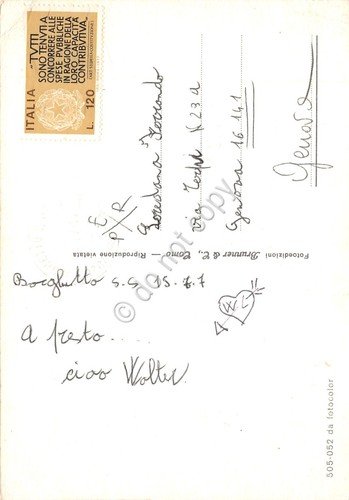 ITALIA L. 120
"TUTTI
SONO TENUTI A
CONCORRERE ALLE
SPESE PUBBLICHE
IN RAGIONE DELLA
LORO CAPACITÀ
CONTRIBUTIVA."
P E R
Via 23 A
Genova 16141
Genova
Fotoedizioni Brunner & C., Como — Riproduzione vietata
Borghetto S.S 15.7.7
W L
A presto....
ciao Walter
305-052 da fotocolor
do not copy